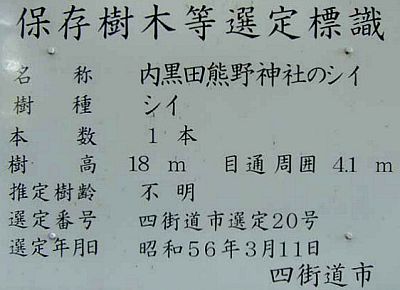 保存樹木等選定標識
名称 内黒田熊野神社のシイ
樹種 シイ
本数 1本
樹高 18m 目通周囲 4.1m
推定樹齢 不明
選定番号 四街道市選定20号
選定年月日 昭和56年3月11日
四街道市